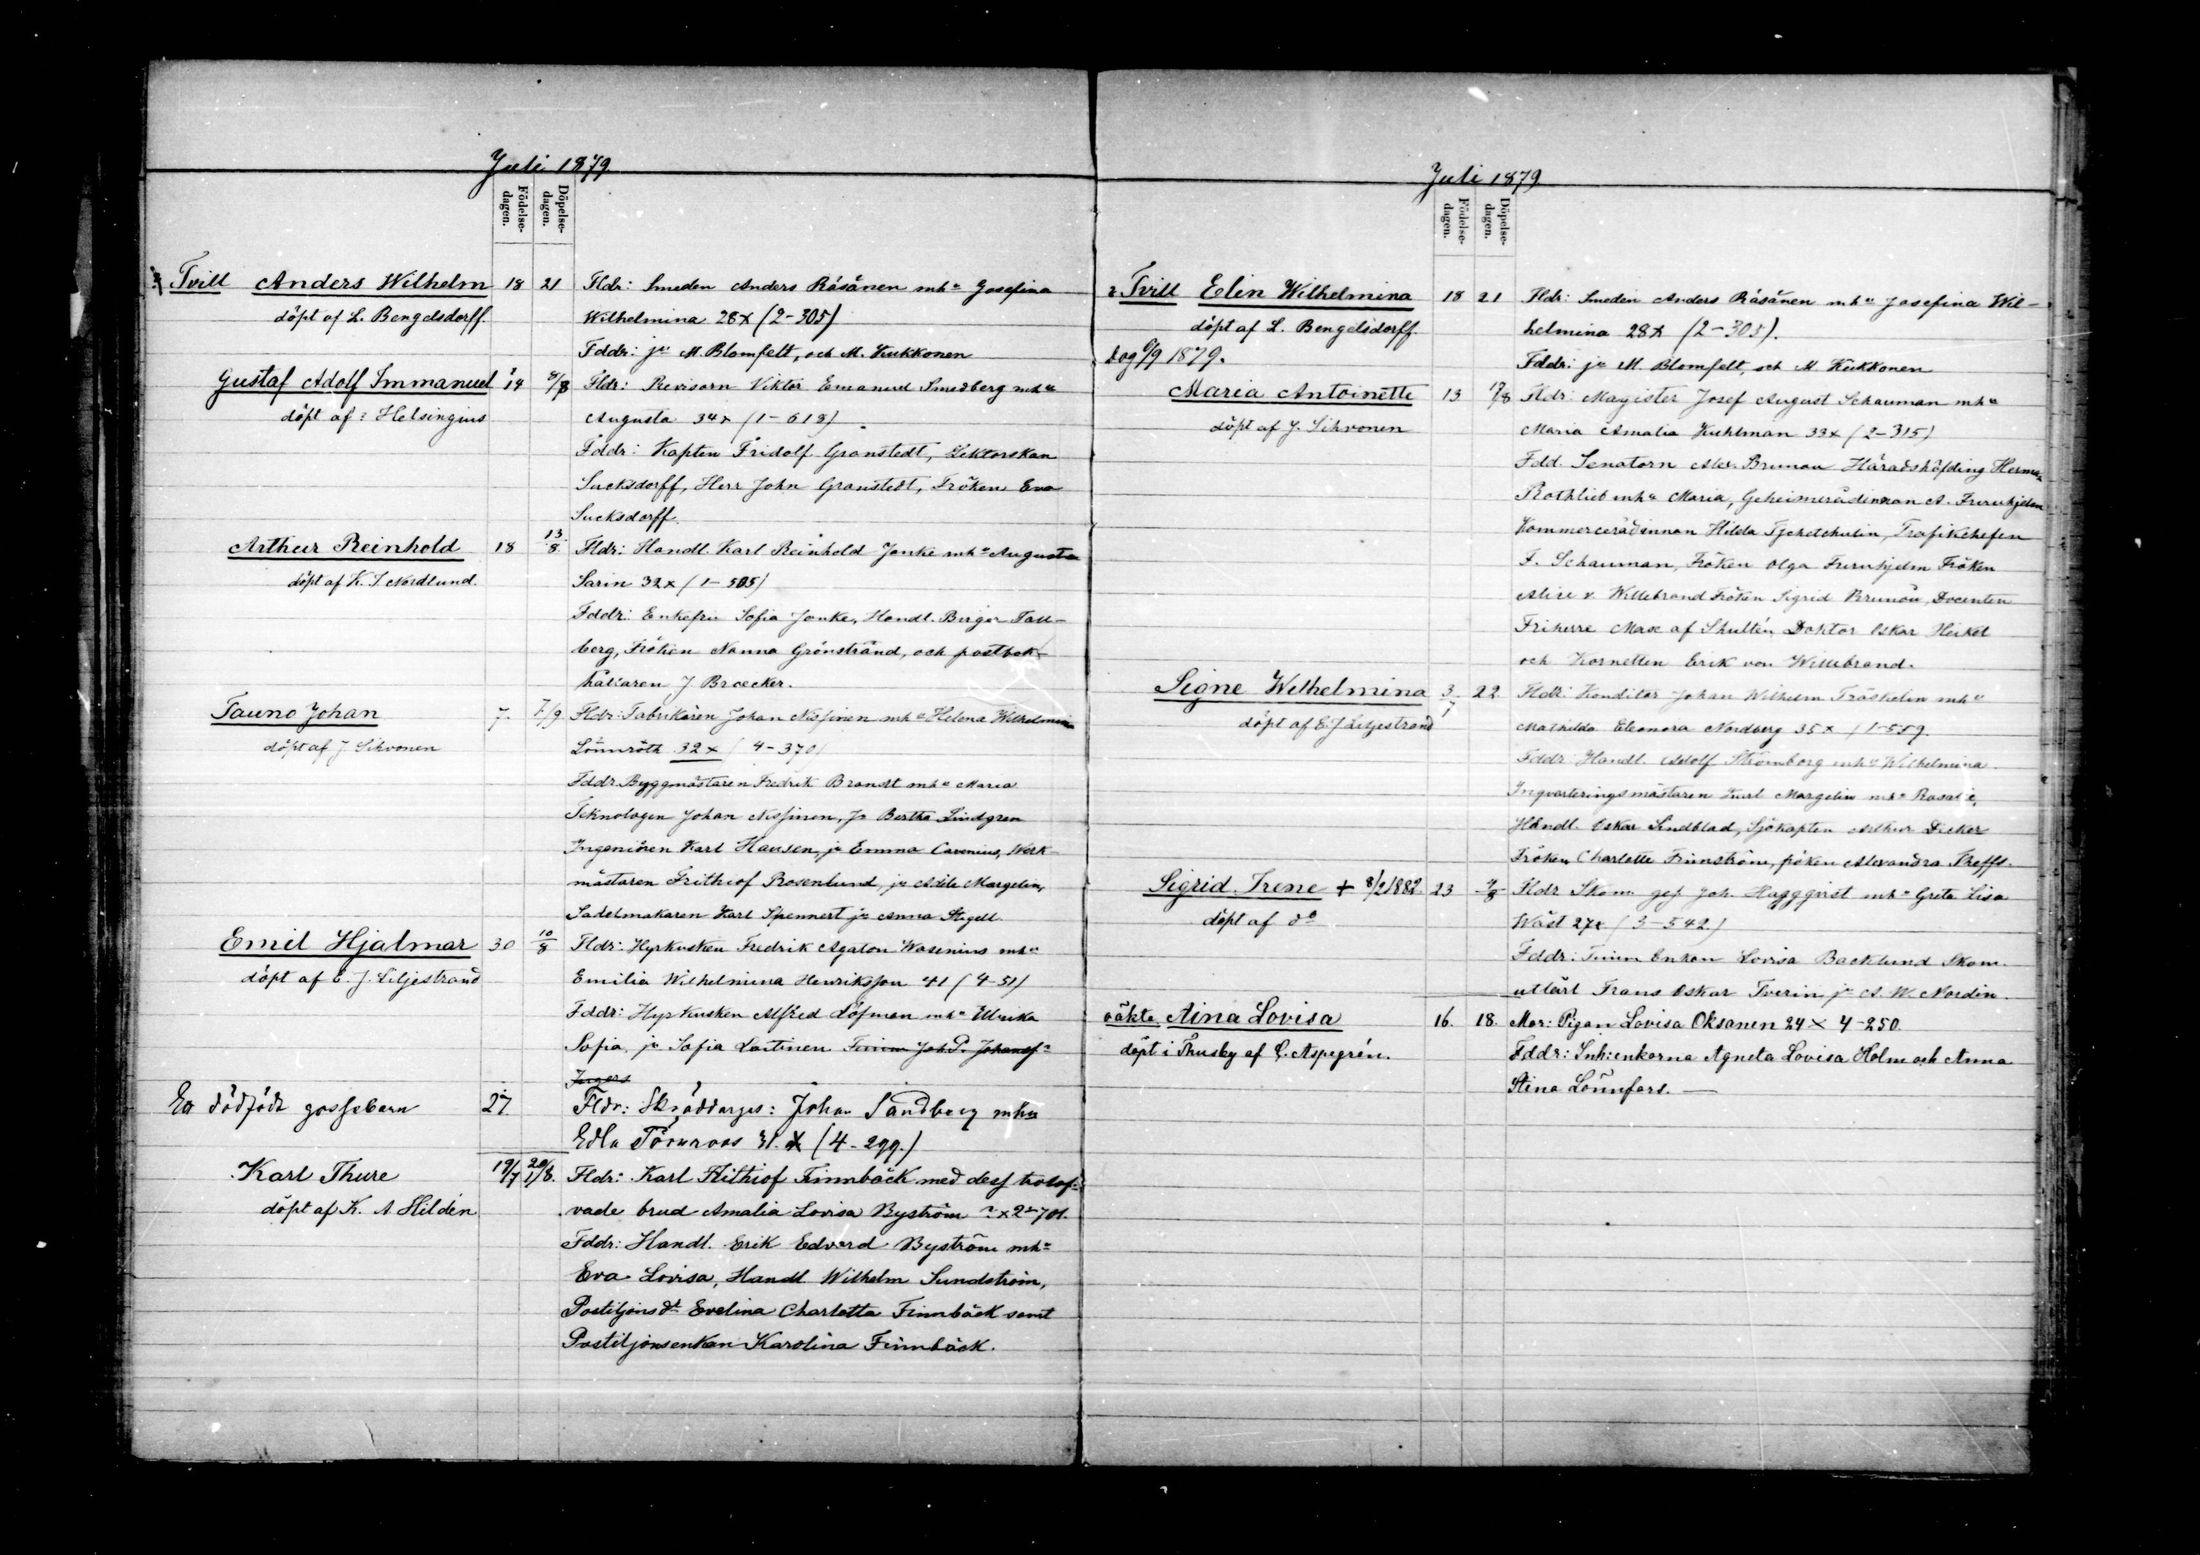 Juli 1879
Födelse-
dagen.
Döpelse-
dagen.
Tvill Anders Wilhelm 18 21 Fldr: Smeden Anders Räsänen mha Josefina
döpt af L. Bengelsdorff. Wilhelmina 28x (2-305)
Fddr: ja M. Blomfelt, och M. Kukkonen
Gustaf Adolf Immanuel 14 Fldr: Revisorn Viktor Emanuel Smedberg mha
döpt af: Helsingius Augusta 34x (1-618)
Fddr: Kapten Fridolf Granstedt, Lektorskan
Sucksdorff, Herr John Granstedt, Fröken Eva
Sucksdorff.
Arthur Reinhold 18 13/8 Fldr: Handl. Karl Reinhold Janke mha Augusta
döpt af K. J Nordlund. Sarin 32x (1-505)
Fddr: Enkefru Sofia Janke, Handl. Birger Tall-
berg, Fröken Nanna Grönstrand, och postbok-
hållaren J Broecker.
Tauno Johan 7. 7/9 Fldr: Fabrikören Johan Nissinen mha Helena Wilhelmina
döpt af J Sihvonen Lönnroth 32x (4-370)
Fddr Byggmästaren Fredrik Brandt mha Maria
Teknologen Johan Nissinen, ja Bertha Lindgren
Ingeniören Karl Hausen, ja Emma Cavenius, Werk-
mästaren Frithiof Rosenlund, ja Adèle Margelin,
Sadelmakaren Karl Spennert ja Anna Stigell.
Emil Hjalmar 30 10/8 Fldr: Hyrkusken Fredrik Agaton Wasenius mha
döpt af E. J. Liljestrand Emilia Wilhelmina Henriksson 41 (4-51)
Fddr: Hyrkusken Alfred Löfman mha Ulrika
Sofia, ja Sofia Laitinen Timm Joh P. Johanss-
Ingers
Ett dödfödt gossebarn 27 Fldr: Skräddarges: Johan Sandberg mha
Edla Törnroos 31. x (4-299.)
Karl Thure 19/7 20/8. Fldr: Karl Frithiof Finnbäck med dess trolof-
döpt af K. A Hildén vade brud Amalia Lovisa Byström ? x 2-701.
Fddr: Handl. Erik Edvard Byström mha
Eva Lovisa, Handl Wilhelm Sundström,
Postiljonsdt Evelina Charlotta Finnbäck samt
Postiljonsenkan Karolina Finnbäck.
Juli 1879
Födelse-
dagen.
Döpelse-
dagen.
2 Tvill Elin Wilhelmina 18 21 Fldr: Smeden Anders Räsänen mha Josefina Wil-
döpt af L. Bengelsdorff. helmina 28x (2-305).
Dog 6/9 1879. Fddr: ja M. Blomfelt och M Kukkonen
Maria Antoinette 13 17/8 Fldr: Magister Josef August Schauman mha
döpt af J. Sihvonen Maria Amalia Kuhlman 33x (2-315)
Fdd. Senatorn Alex. Brunou Häradshöfding Herman
Rothlieb mha Maria, Geheimerådinnan A. Furuhjelm
Kommercerådinnan Hilda Tschetschulin, Trafikchefen
F. Schauman, Fröken Olga Furuhjelm Fröken
Alice v. Willebrand Fröken Sigrid Brunou, Docenten
Friherre Max af Shultén Doktor Oskar Heikel
och Kornetten Erik von Willebrand.
Signe Wilhelmina 3/7 22 Fldr: Konditor Johan Wilhelm Träskelin mha
döpt af E. J Liljestrand Mathilda Eleonora Nordberg 35x (1-559.
Fddr Handl. Adolf Strömborg mha Wilhelmina.
Inqvarteringsmästaren Kurt Margelin mha Rosalie,
Handl. Oskar Lindblad, Sjökapten Arthur Decker
Fröken Charlotte Finnström, fröken Alexandra Treffs.
Sigrid Irene + 8/2 1882 23 Fldr Skom. ges Joh. Haggqvist mha Greta Lisa
döpt af do Wäst 27x (3-542)
Fddr: Timm Enkan Lovisa Backlund Skom.
utlärl Frans Oskar Tverin ja A. W. Nordin.
oäkta Aina Lovisa 16. 18. Mor: Pigan Lovisa Oksanen 24 x 4-250.
döpt i Thusby af C. Aspegrén. Fddr: Inh:enkorna Agneta Lovisa Holm och Anna
Stina Lönnfors. —